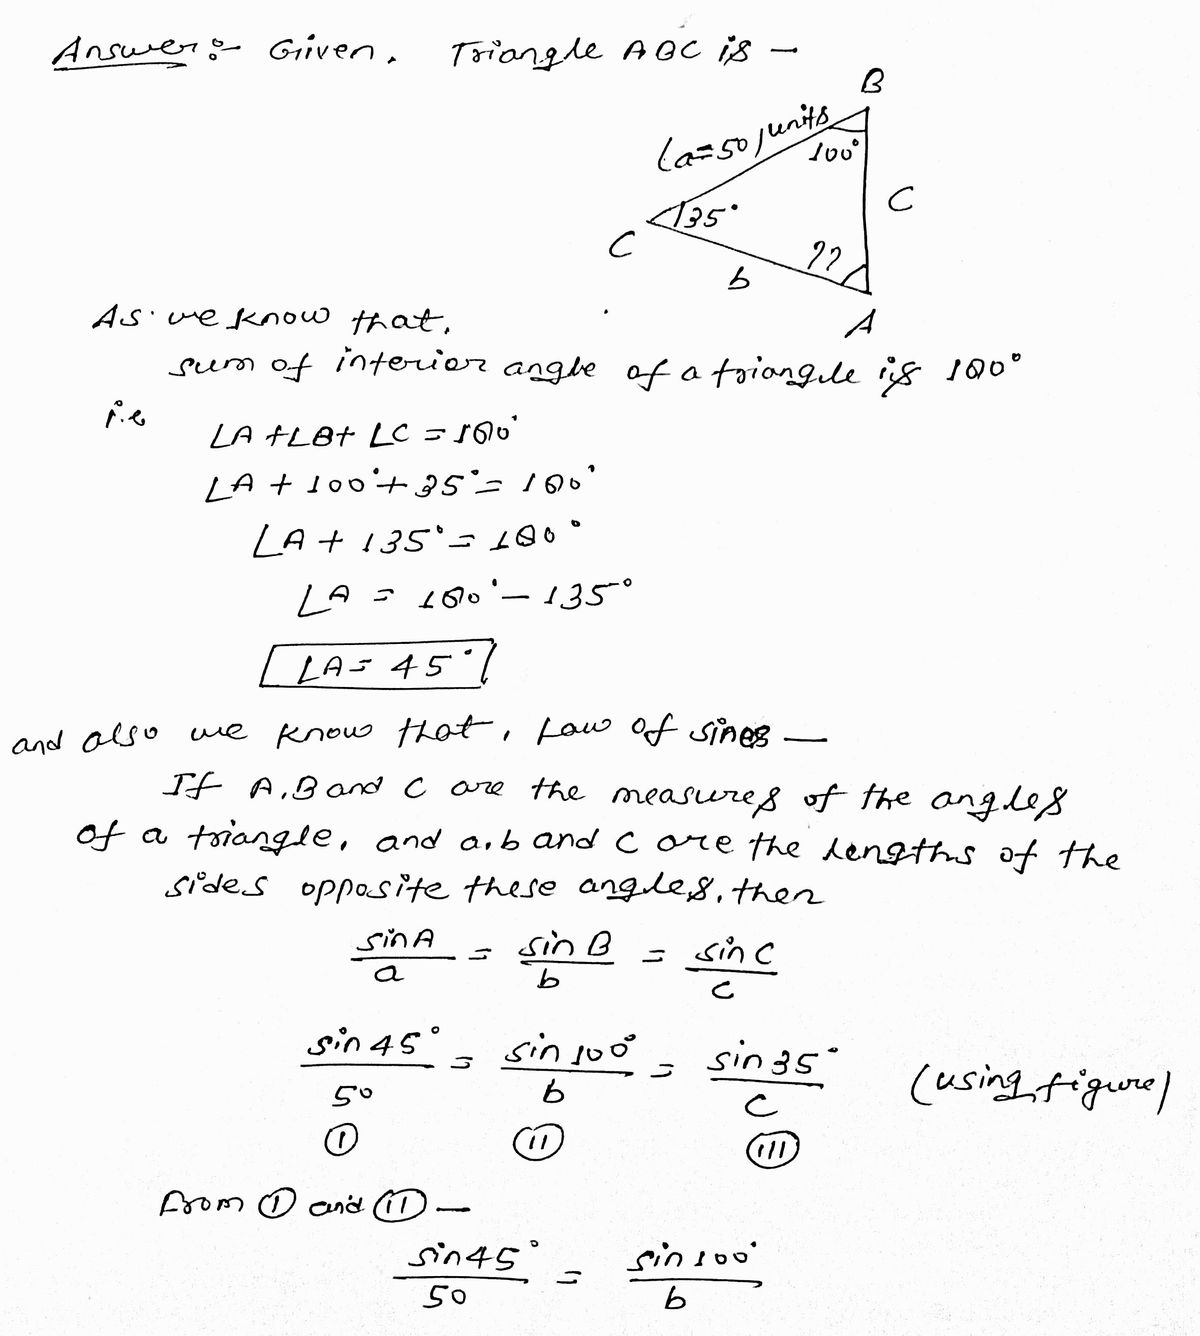 Answer:- Given, Triangle ABC is -
B
(a=50) units
100°
C
35°
C
??
b
A
As we know that,
sum of interior angle of a triangle is 180°
i.e
∠A+∠B+∠C=180°
∠A+100°+35°=180°
∠A+135°=180°
∠A=180°-135°
∠A=45°
and also we know that, Law of sines -
If A,B and C are the measures of the angles
of a triangle, and a,b and c are the lengths of the
sides opposite these angles, then
sin A/a = sin B/b = sin C/c
sin 45°/50 = sin 100°/b = sin 35°/c (using figure)
(I) (II) (III)
From (I) and (II) -
sin 45°/50 = sin 100°/b